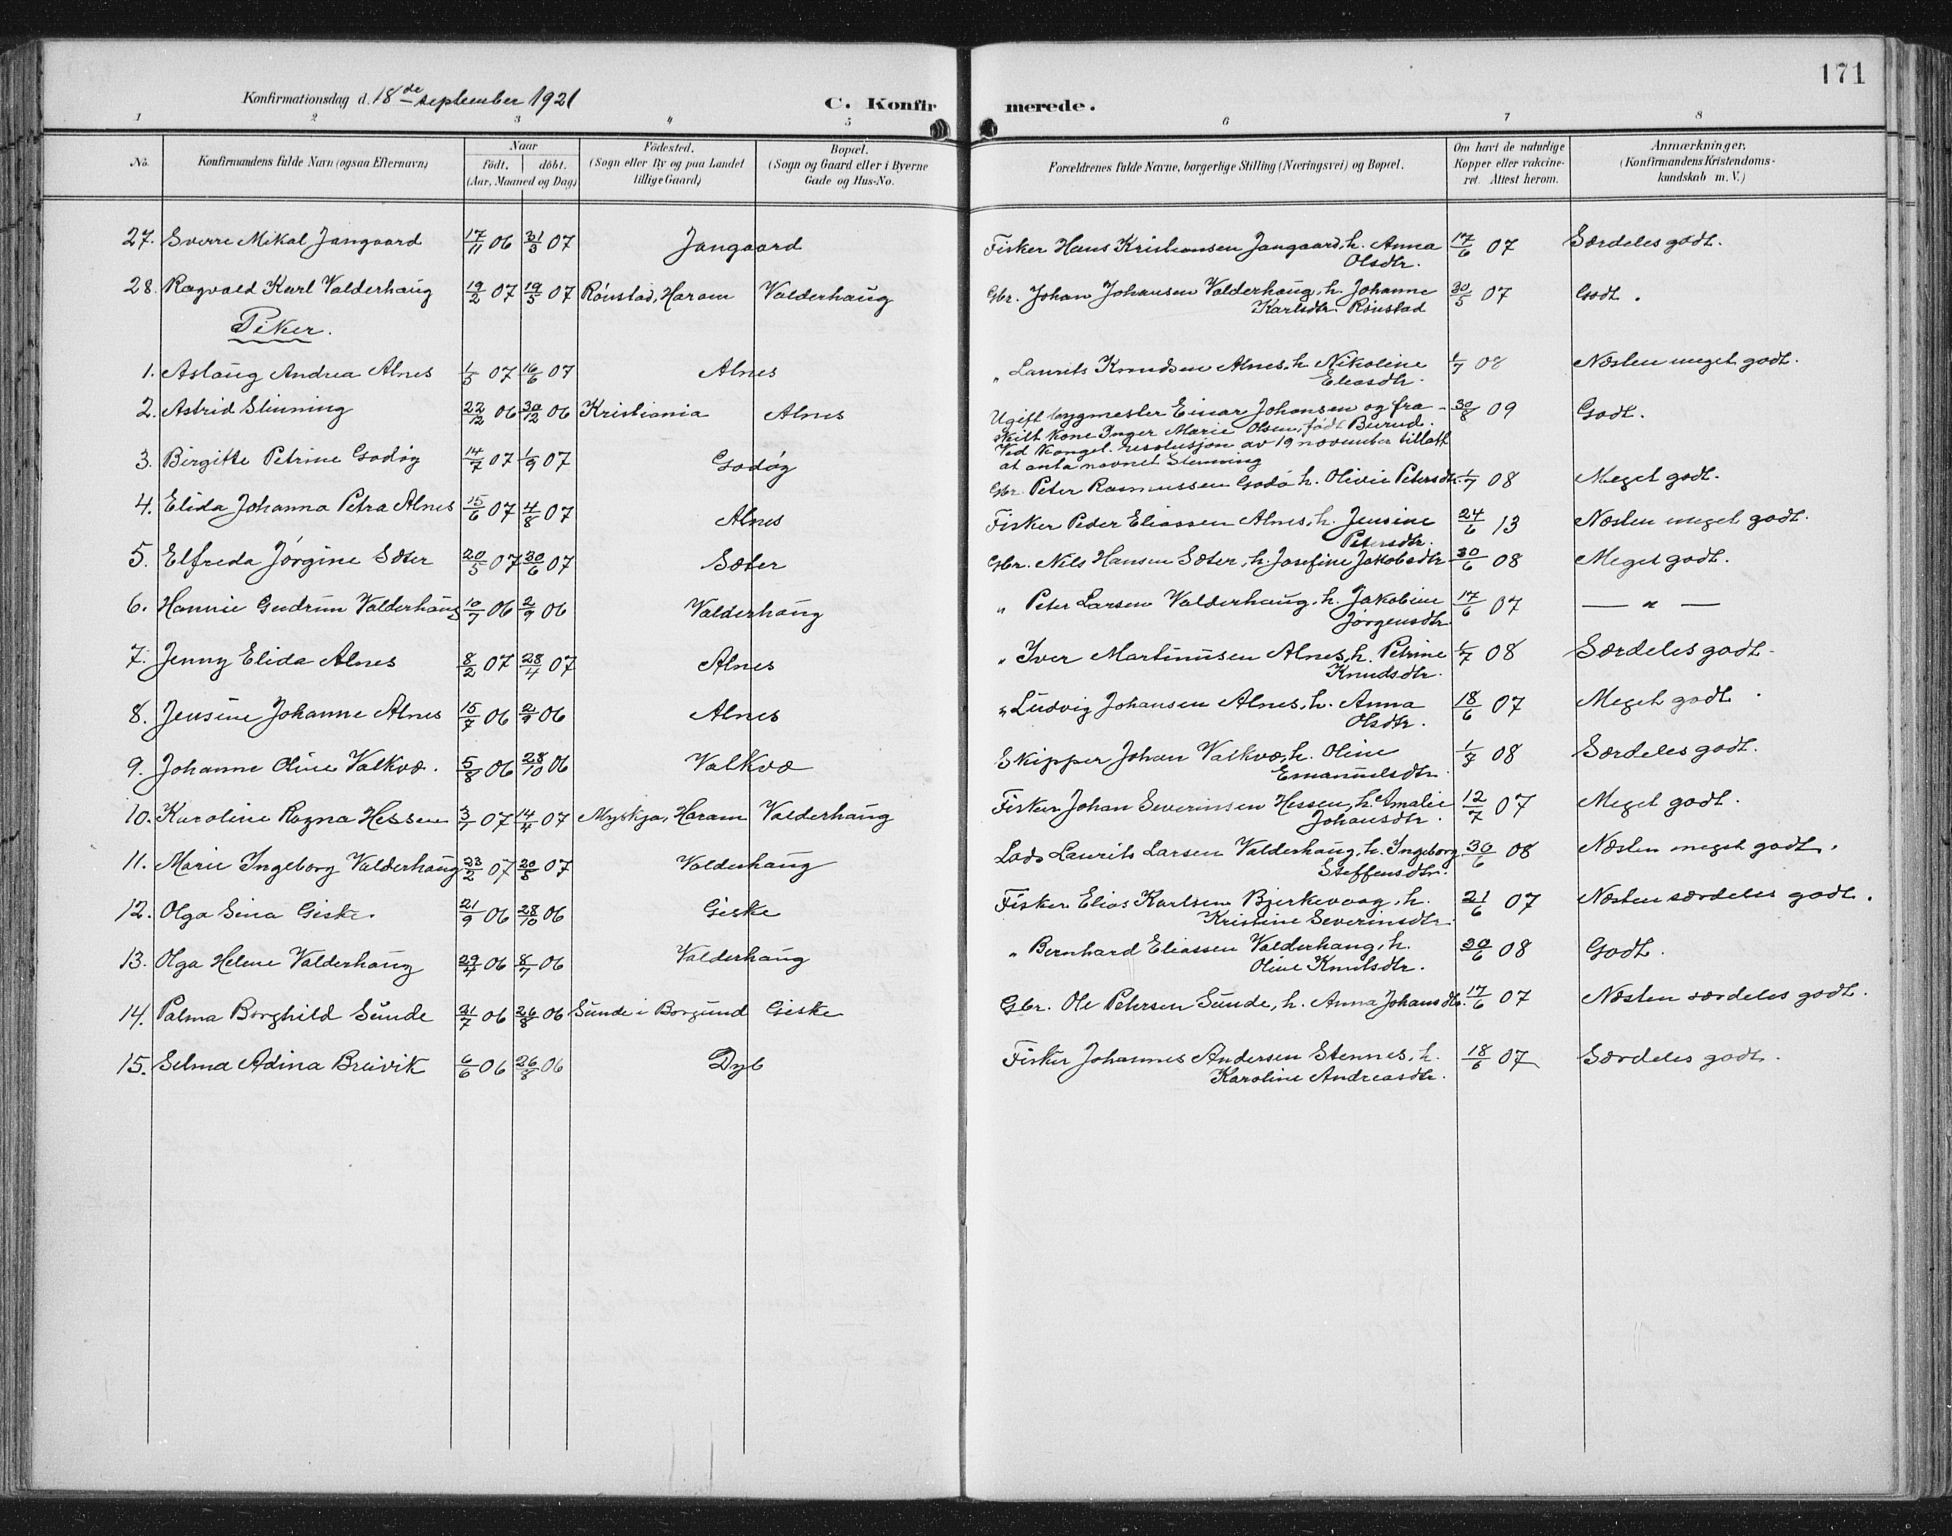 171
Konfirmationsdag d. 18de september 1921
C. Konfirmerede.
1 2 3 4 5 6 7 8
No. Konfirmandens fulde Navn (ogsaa Efternavn) Naar födt. döbt. (Aar, Maaned og Dag) Födested. (Sogn eller By og paa Landet tillige Gaard) Bopæl. (Sogn og Gaard eller i Byerne Gade og Hus-No. Forældrenes fulde Navne, borgerlige Stilling (Næringsvei) og Bopæl. Om havt de naturlige Kopper eller vakcineret. Attest herom. Anmærkninger. (Konfirmandens Kristendomskundskab m. V.)
27. Sverre Mikal Jangaard 17/11 06 31/3 07 Jangaard Fisker Hans Kristiansen Jangaard, h. Anna Olsdtr. 17/6 07 Særdeles godt.
28. Ragvald Karl Valderhaug 19/2 07 19/5 07 Rönstad, Haram Valderhaug Gbr. Johan Johansen Valderhaug, h. Johanne Karlsdtr. Rönstad 30/5 07 Godt.
Piker.
1. Aslaug Andrea Alnes 1/5 07 16/6 07 Alnes " Laurits Knudsen Alnes, h. Nikoline Eliasdtr. 1/7 08 Næsten meget godt.
2. Astrid Stenning 22/12 06 30/12 06 Kristiania Alnes Ugift bygmester Einar Johansen og fraskilt kone Inger Marie Olsen, født Bierud. Ved kongel. resolusjon av 19 november tillatt at anta navnet Stenning 30/8 09 Godt.
3. Birgitte Petrine Godøy 14/7 07 1/9 07 Godøy Gbr. Peter Rasmussen Godø h. Olivie Petersdtr. 1/7 08 Meget godt.
4. Elida Johanna Petra Alnes 15/6 07 4/8 07 Alnes Fisker Peder Eliassen Alnes, h. Jensine Petersdtr. 24/6 13 Næsten meget godt.
5. Elfreda Jørgine Sæter 20/5 07 30/6 07 Sæter Gbr. Nils Hansen Sæter, h. Josefine Jakobsdtr 30/6 08 Meget godt.
6. Hannie Gudrun Valderhaug 10/7 06 2/9 06 Valderhaug " Peter Larsen Valderhaug, h. Jakobine Jørgensdtr. 17/6 07 — " —
7. Jenny Elida Alnes 8/2 07 28/4 07 Alnes " Iver Martinusen Alnes, h. Petrine Knudsdtr. 1/7 08 Særdeles godt.
8. Jensine Johanne Alnes 15/7 06 2/9 06 Alnes " Ludvig Johansen Alnes, h. Anna Olsdtr. 18/6 07 Meget godt.
9. Johanne Oline Valkvæ. 5/8 06 28/10 06 Valkvæ Skipper Johan Valkvæ, h. Oline Emanuelsdtr. 1/7 08 Særdeles godt.
10. Karoline Ragna Hessen 3/7 07 14/4 07 Myskja, Haram Valderhaug Fisker Johan Severinsen Hessen, h. Amalie Johansdtr. 12/7 07 Meget godt.
11. Marie Ingeborg Valderhaug 23/2 07 20/5 07 Valderhaug Lods Laurits Larsen Valderhaug, h. Ingeborg Steffensdtr. 30/6 08 Næsten meget godt.
12. Olga Sina Giske. 21/9 06 28/10 06 Giske Fisker Elias Karlsen Bjerkevaag, h. Kristine Severinsdtr 21/6 07 Næsten særdeles godt.
13. Olga Helene Valderhaug 29/4 06 8/7 06 Valderhaug " Bernhard Eliassen Valderhaug, h. Oline Knutsdtr. 30/6 08 Godt.
14. Palma Borghild Sunde 21/7 06 26/8 06 Sunde i Borgund Giske Gbr. Ole Petersen Sunde, h. Anna Johansdtr. 17/6 07 Næsten særdeles godt.
15. Selma Adina Breivik 6/6 06 26/8 06 Dyb Fisker Johannes Andersen Stennes, h. Karoline Andreasdtr. 18/6 07 Særdeles godt.